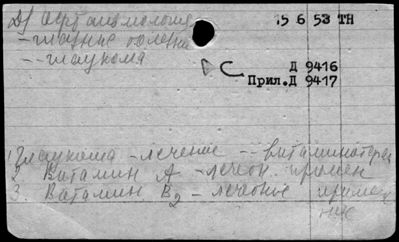 15 6 53 ТН
Офтальмология
- глазные болезни
-- глаукома
Д 9416
Прил.Д 9417
1 Глаукома - лечение -- витаминотерап
2. Витамин А - лечебн. примен
3. Витамин В2 - лечебное примене
ние